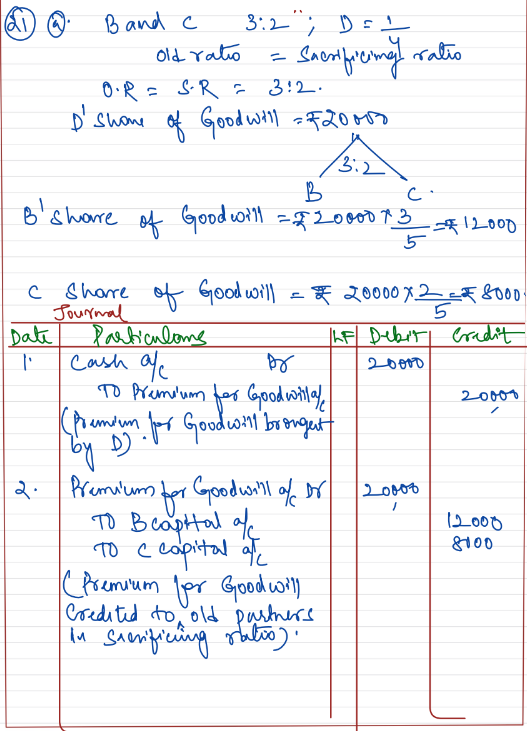 21) a. B and C 3:2 ; D = 1/4
Old ratio = Sacrificing ratio
O.R = S.R = 3:2.
D's Share of Goodwill = ₹20000
3:2
B C.
B's share of Goodwill = ₹20000 x 3/5 = ₹12000
C Share of Goodwill = ₹ 20000 x 2/5 = ₹8000
Journal
Date Particulars LF Debit Credit
1. Cash a/c Dr 20000
TO Premium for Goodwill a/c 20000
(Premium for Goodwill brought
by D).
2. Premium for Goodwill a/c Dr 20000
TO B capital a/c 12000
TO C capital a/c 8000
(Premium for Goodwill
Credited to old partners
in sacrificing ratio).